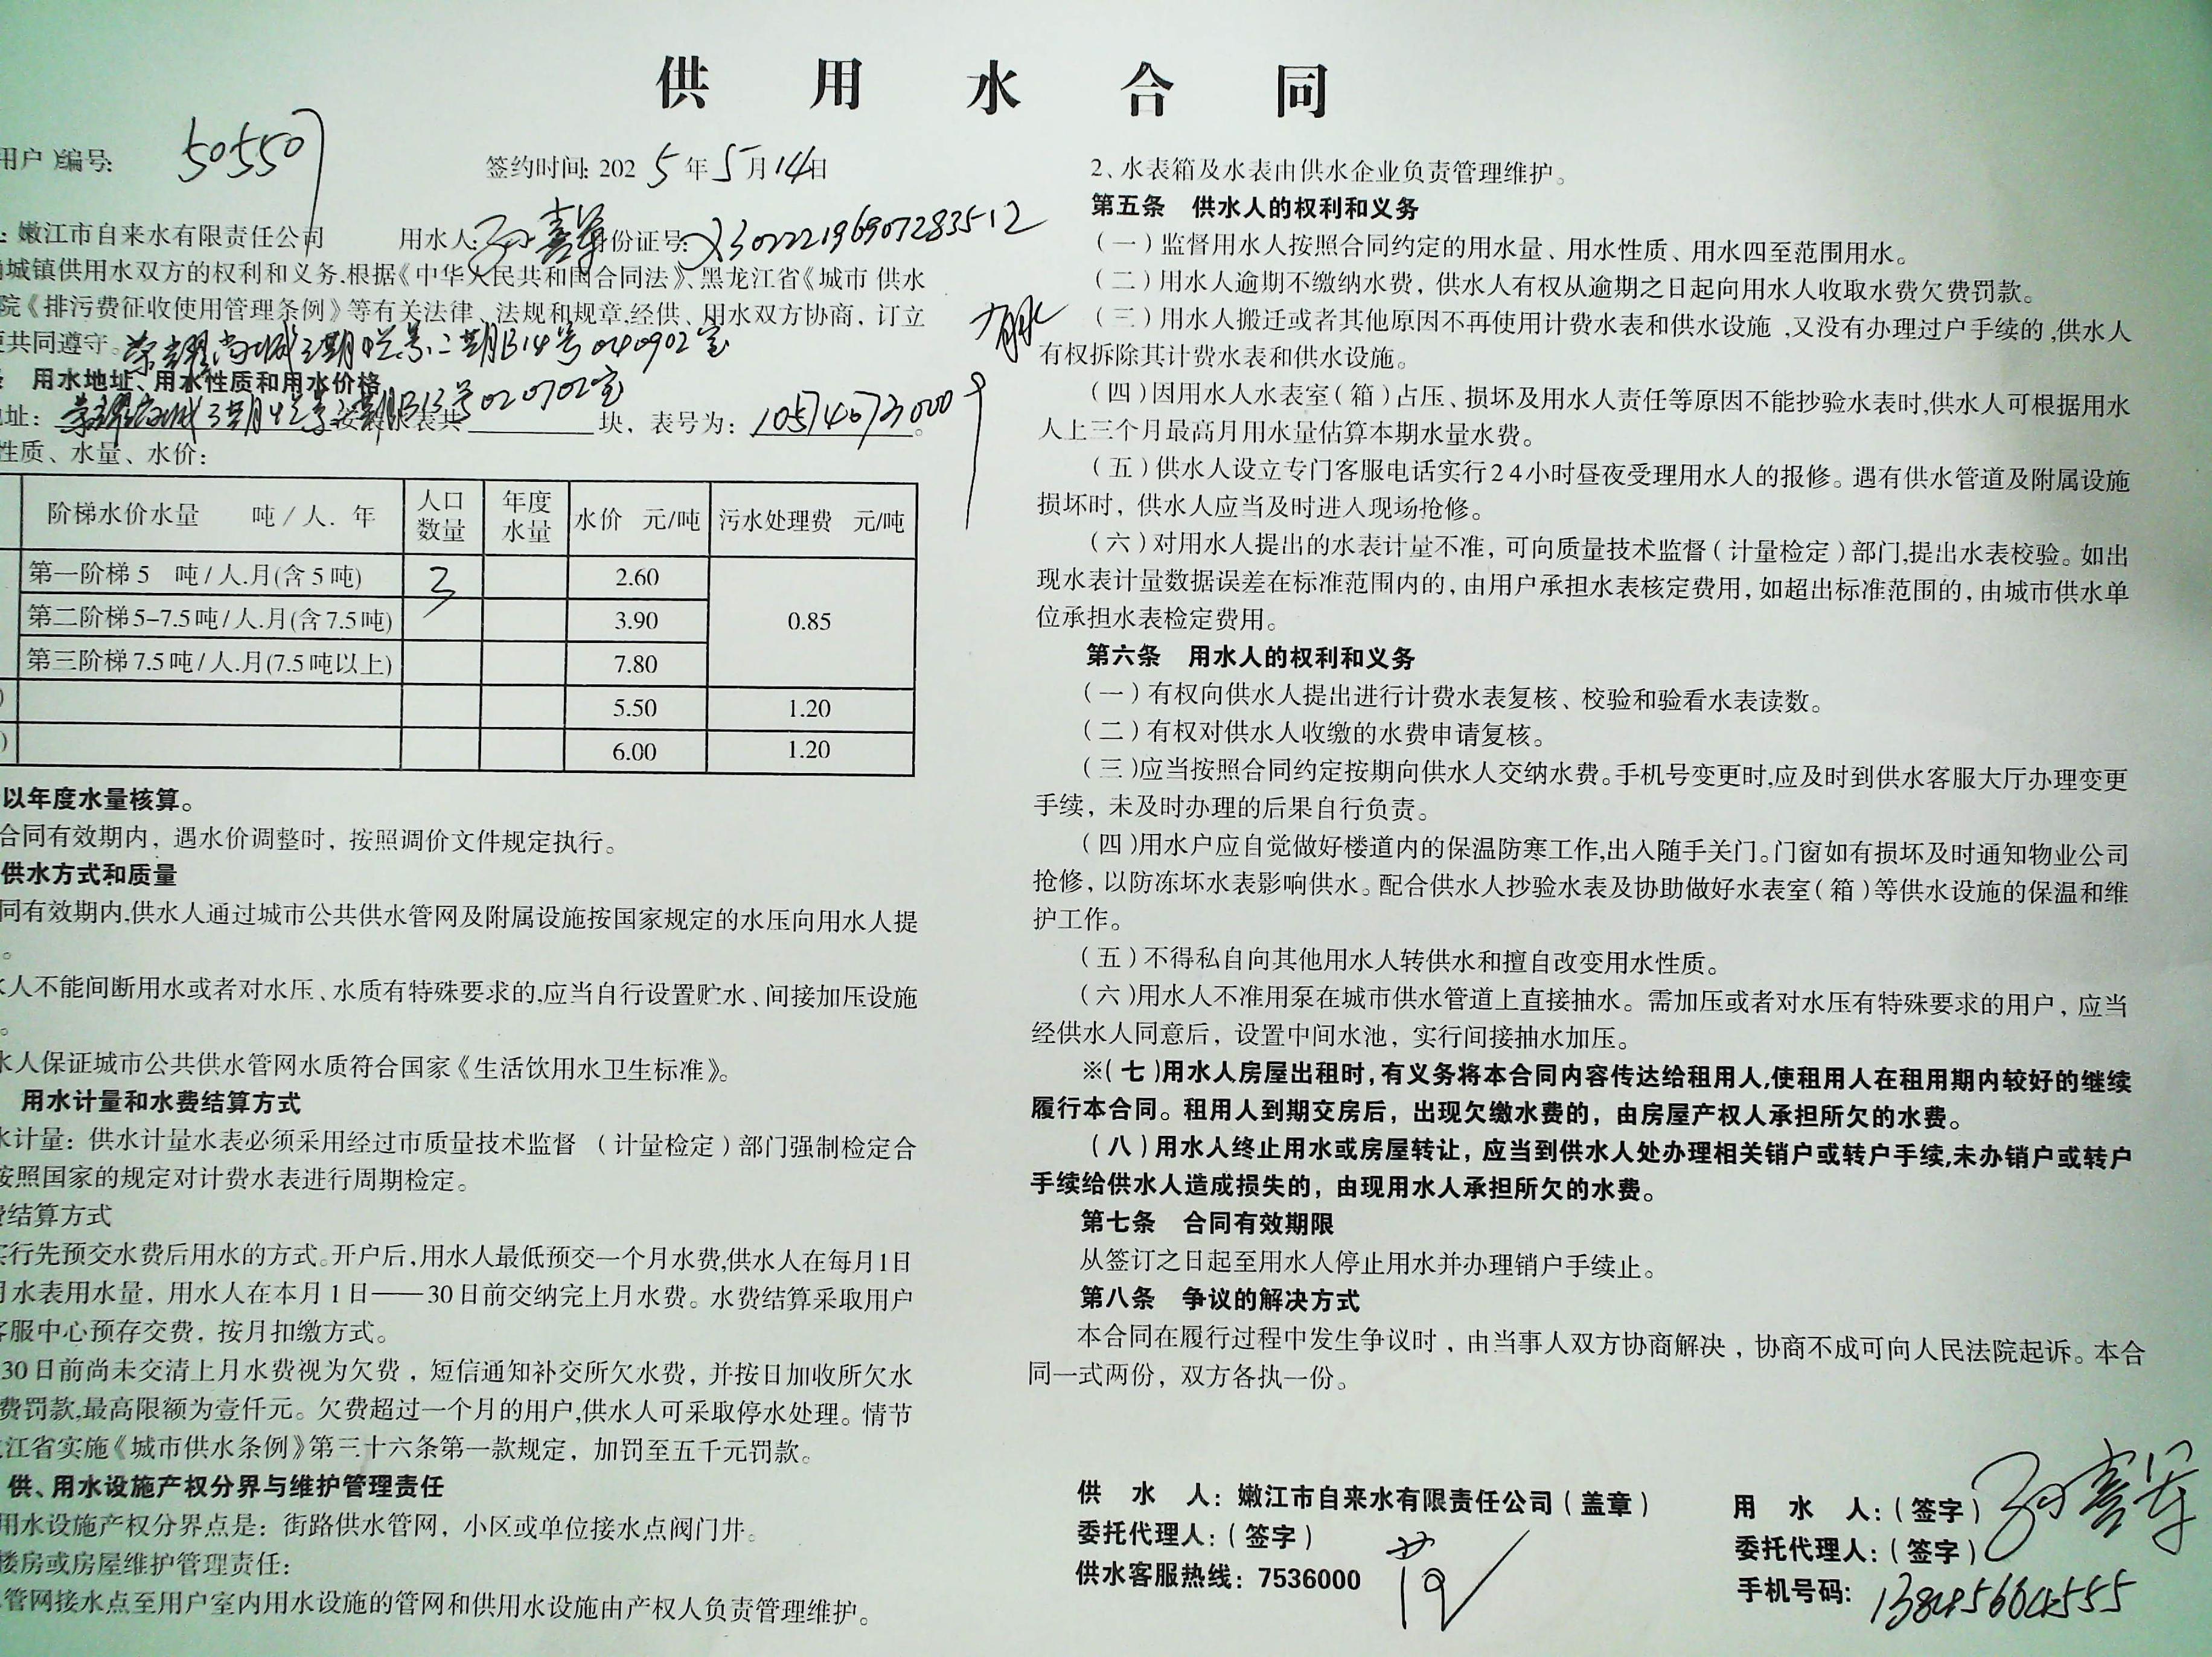 供用水合同
用户）编号：505507
签约时间：2025年5月14日
：嫩江市自来水有限责任公司 用水人：孙喜军 身份证号：
城镇供用水双方的权利和义务,根据《中华人民共和国合同法》、黑龙江省《城市 供水
院《排污费征收使用管理条例》等有关法律、法规和规章,经供、用水双方协商，订立
共同遵守。
荣耀尚城三期 二期B14号040902室
用水地址、用水性质和用水价格
址：荣耀尚城三期 B13号020702室 表共 块，表号为：
性质、水量、水价：
阶梯水价水量 吨/人.年 人口数量 年度水量 水价 元/吨 污水处理费 元/吨
第一阶梯 5 吨/人.月(含5吨) 3 2.60
第二阶梯5-7.5吨/人.月(含7.5吨) 3.90 0.85
第三阶梯7.5吨/人.月(7.5吨以上) 7.80
) 5.50 1.20
) 6.00 1.20
以年度水量核算。
合同有效期内，遇水价调整时，按照调价文件规定执行。
供水方式和质量
同有效期内,供水人通过城市公共供水管网及附属设施按国家规定的水压向用水人提
。
水人不能间断用水或者对水压、水质有特殊要求的,应当自行设置贮水、间接加压设施
。
水人保证城市公共供水管网水质符合国家《生活饮用水卫生标准》。
用水计量和水费结算方式
水计量：供水计量水表必须采用经过市质量技术监督（计量检定）部门强制检定合
按照国家的规定对计费水表进行周期检定。
费结算方式
实行先预交水费后用水的方式。开户后,用水人最低预交一个月水费,供水人在每月1日
月水表用水量，用水人在本月1日——30日前交纳完上月水费。水费结算采取用户
客服中心预存交费，按月扣缴方式。
30日前尚未交清上月水费视为欠费，短信通知补交所欠水费，并按日加收所欠水
费罚款,最高限额为壹仟元。欠费超过一个月的用户,供水人可采取停水处理。情节
江省实施《城市供水条例》第三十六条第一款规定，加罚至五千元罚款。
供、用水设施产权分界与维护管理责任
用水设施产权分界点是：街路供水管网，小区或单位接水点阀门井。
楼房或房屋维护管理责任：
管网接水点至用户室内用水设施的管网和供用水设施由产权人负责管理维护。
2、水表箱及水表由供水企业负责管理维护。
第五条 供水人的权利和义务
（一）监督用水人按照合同约定的用水量、用水性质、用水四至范围用水。
（二）用水人逾期不缴纳水费，供水人有权从逾期之日起向用水人收取水费欠费罚款。
（三）用水人搬迁或者其他原因不再使用计费水表和供水设施，又没有办理过户手续的,供水人
有权拆除其计费水表和供水设施。
（四）因用水人水表室（箱）占压、损坏及用水人责任等原因不能抄验水表时,供水人可根据用水
人上三个月最高月用水量估算本期水量水费。
（五）供水人设立专门客服电话实行24小时昼夜受理用水人的报修。遇有供水管道及附属设施
损坏时，供水人应当及时进入现场抢修。
（六）对用水人提出的水表计量不准，可向质量技术监督（计量检定）部门,提出水表校验。如出
现水表计量数据误差在标准范围内的，由用户承担水表核定费用，如超出标准范围的，由城市供水单
位承担水表检定费用。
第六条 用水人的权利和义务
（一）有权向供水人提出进行计费水表复核、校验和验看水表读数。
（二）有权对供水人收缴的水费申请复核。
（三）应当按照合同约定按期向供水人交纳水费。手机号变更时,应及时到供水客服大厅办理变更
手续，未及时办理的后果自行负责。
（四）用水户应自觉做好楼道内的保温防寒工作,出入随手关门。门窗如有损坏及时通知物业公司
抢修，以防冻坏水表影响供水。配合供水人抄验水表及协助做好水表室（箱）等供水设施的保温和维
护工作。
（五）不得私自向其他用水人转供水和擅自改变用水性质。
（六）用水人不准用泵在城市供水管道上直接抽水。需加压或者对水压有特殊要求的用户，应当
经供水人同意后，设置中间水池，实行间接抽水加压。
※（七）用水人房屋出租时,有义务将本合同内容传达给租用人,使租用人在租用期内较好的继续
履行本合同。租用人到期交房后，出现欠缴水费的，由房屋产权人承担所欠的水费。
（八）用水人终止用水或房屋转让，应当到供水人处办理相关销户或转户手续,未办销户或转户
手续给供水人造成损失的，由现用水人承担所欠的水费。
第七条 合同有效期限
从签订之日起至用水人停止用水并办理销户手续止。
第八条 争议的解决方式
本合同在履行过程中发生争议时，由当事人双方协商解决，协商不成可向人民法院起诉。本合
同一式两份，双方各执一份。
供 水 人：嫩江市自来水有限责任公司（盖章）
委托代理人：（签字）
供水客服热线：7536000
用 水 人：（签字）孙喜军
委托代理人：（签字）
手机号码：13845664555